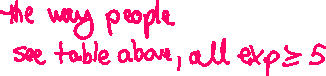 the way people
see table above, all exp ≥ 5